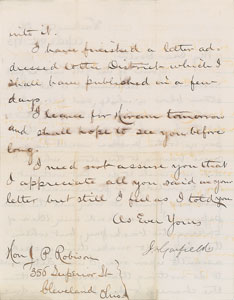 with it.
I have finished a letter ad-
dressed to the District which I
shall have published in a few
days
I leave for Hiram tomorrow
and shall hope to see you before
long.
I need not assure you that
I appreciate all you said in your
letter but still I feel as I told you
As Ever Yours
J. A. Garfield
Hon J. P. Robison
356 Superior St
Cleveland Ohio